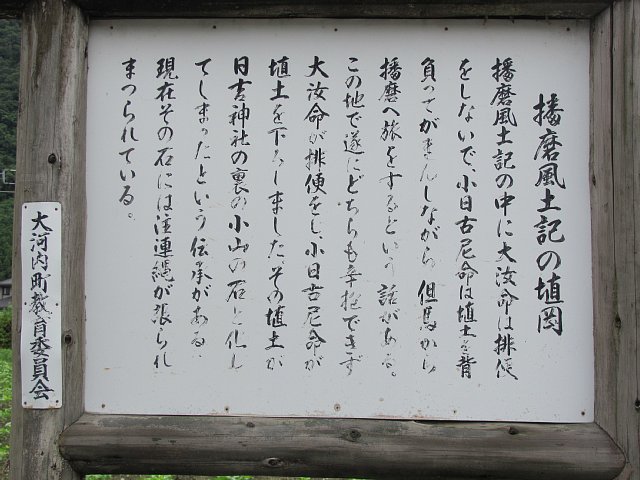 播磨風土記の埴岡
播磨風土記の中に大汝命は排便
をしないで、小日古尼命は埴土を背
負ってがまんしながら、但馬から
播磨へ旅をするという話がある。
この地で遂にどちらも辛抱できず
大汝命が排便をし、小日古尼命が
埴土を下ろしましたその埴土が
日吉神社の裏の小山の石と化し
てしまったという伝承がある。
現在その石には注連縄が張られ
まつられている。
大河内町教育委員会